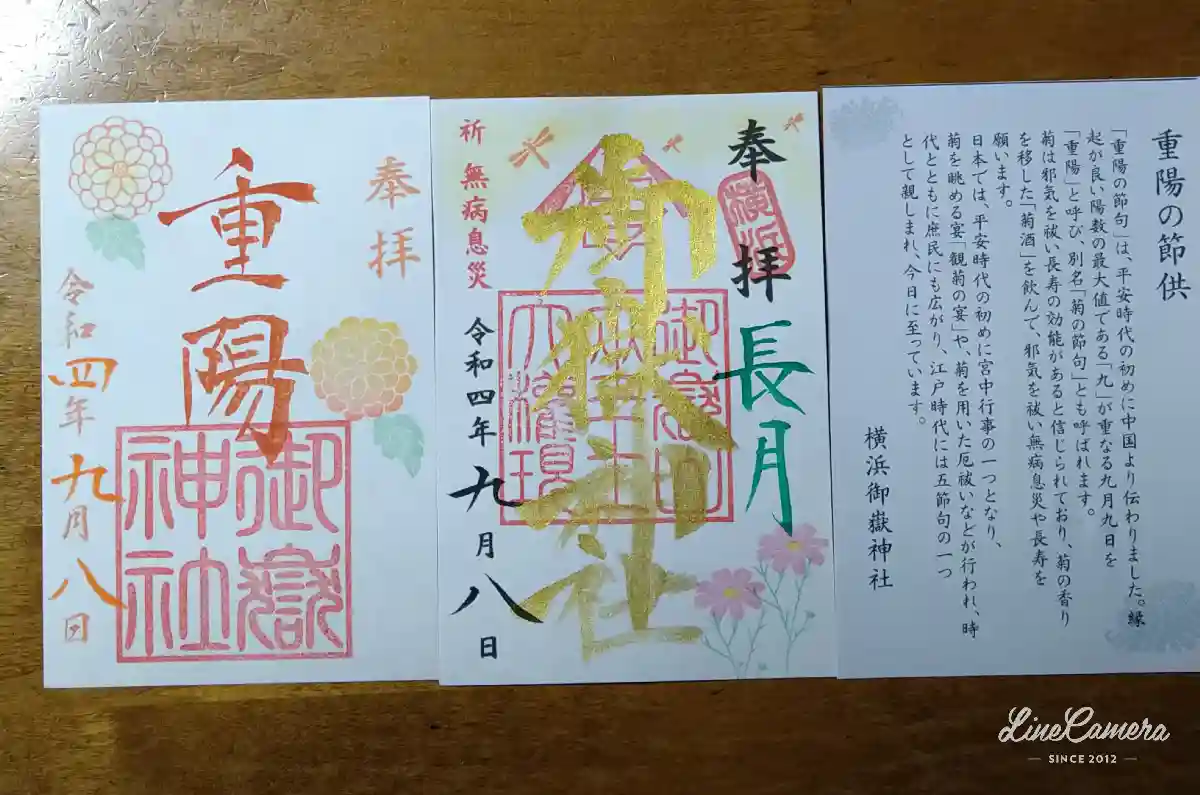 奉拝
重陽
令和四年九月八日
御嶽
神社
奉拝
長月
横浜
御嶽神社
祈 無病息災
令和四年九月八日
重陽の節供
「重陽の節句」は、平安時代の初めに中国より伝わりました。縁
起が良い陽数の最大値である「九」が重なる九月九日を
「重陽」と呼び、別名「菊の節句」とも呼ばれます。
菊は邪気を祓い長寿の効能があると信じられており、菊の香り
を移した「菊酒」を飲んで、邪気を祓い無病息災や長寿を
願います。
日本では、平安時代の初めに宮中行事の一つとなり、
菊を眺める宴「観菊の宴」や、菊を用いた厄祓いなどが行われ、時
代とともに庶民にも広がり、江戸時代には五節句の一つ
として親しまれ、今日に至っています。
横浜御嶽神社
LineCamera
SINCE 2012